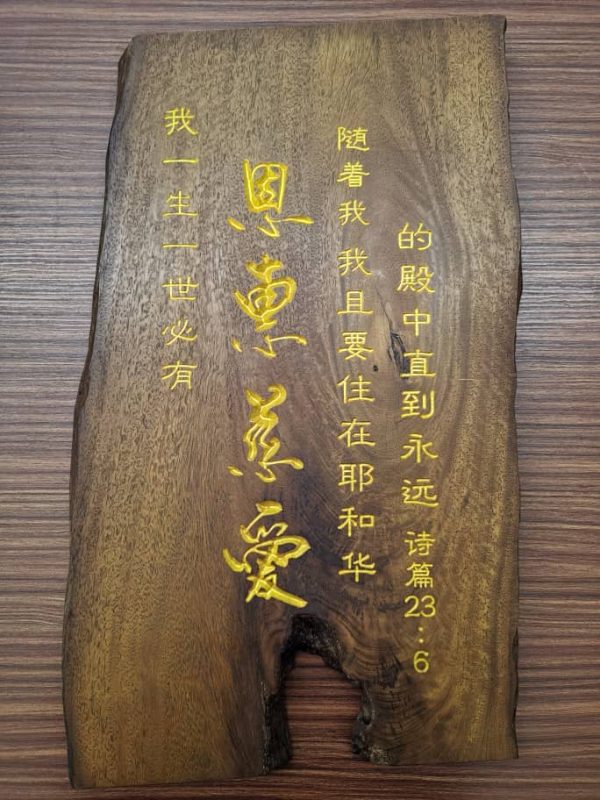 我一生一世必有
恩惠慈爱
随着我我且要住在耶和华
的殿中直到永远 诗篇23:6